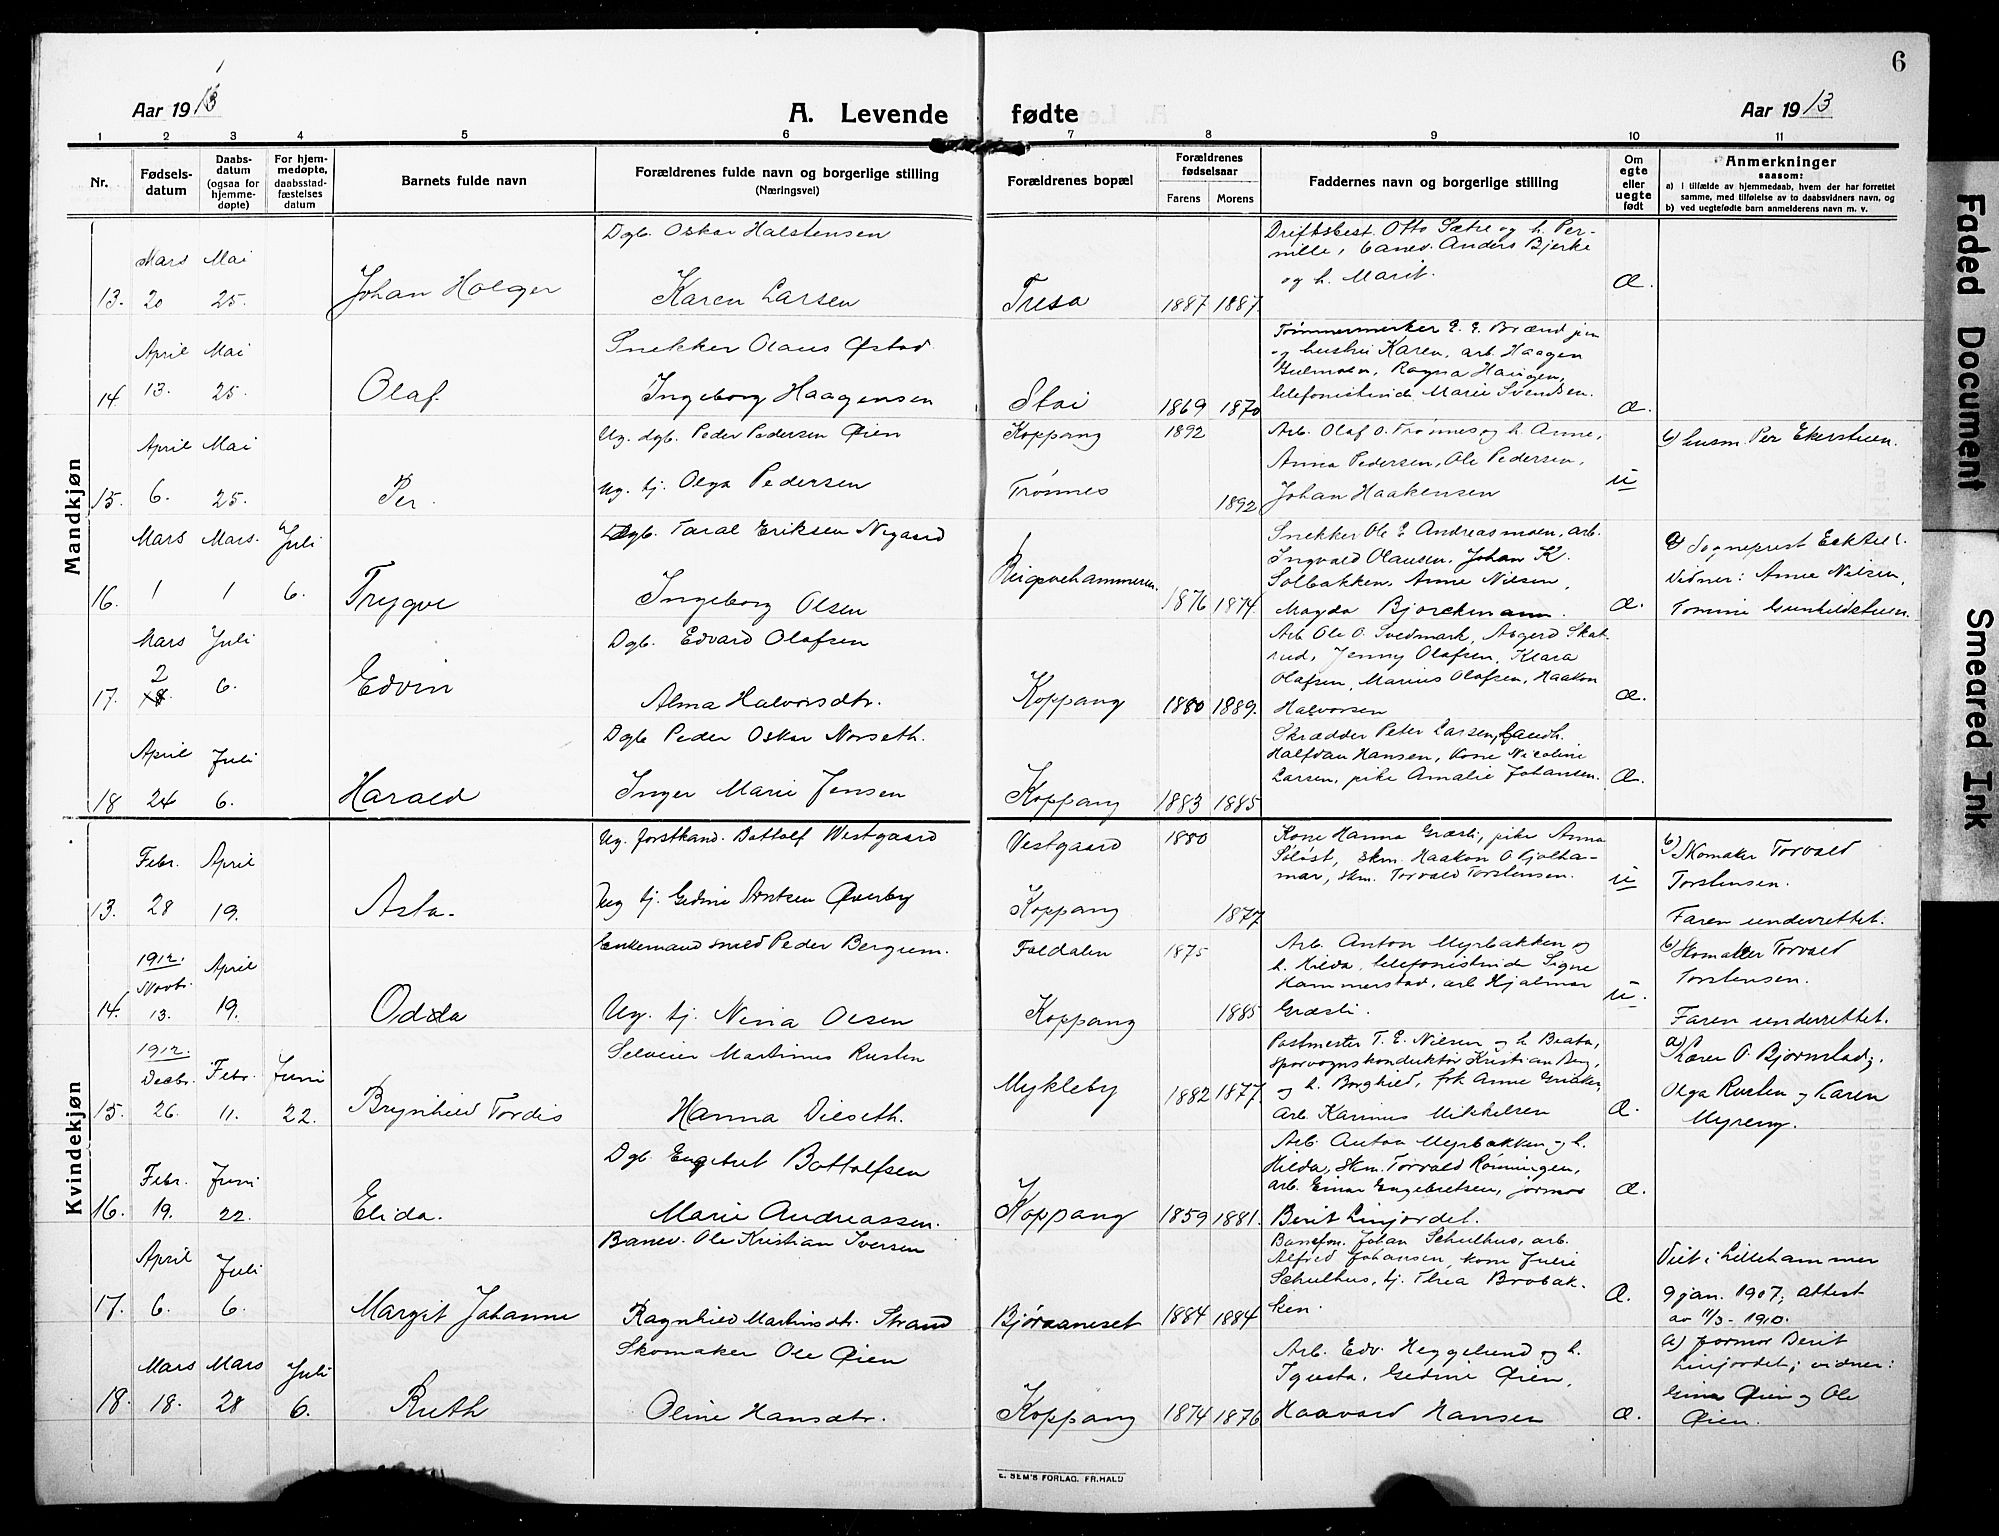 6
Aar 1913
A. Levende fødte
Aar 1913
1 2 3 4 5 6 7 8 9 10 11
Nr.
Fødsels-
datum
Daabs-
datum
(ogsaa for
hjemme-
døpte)
For hjem-
medøpte,
daabsstad-
fæstelses
datum
Barnets fulde navn
Forældrenes fulde navn og borgerlige stilling
(Næringsvei)
Forældrenes bopæl
Forældrenes
fødselsaar
Farens Morens
Faddernes navn og borgerlige stilling
Om
egte
eller
uegte
født
Anmerkninger
saasom:
a) i tilfælde av hjemmedaab, hvem der har forrettet
samme, med tilføielse av to daabsvidners navn, og
b) ved uegtefødte barn anmelderens navn m. v.
Mandkjøn
13. Mars 20 Mai 25. Johan Holger
Dgb. Oskar Halstensen
Karen Larsen
Tresa 1887 1887.
Driftsbest. Otto Sætre og h. Per-
nille, banev. Anders Bjerke
og h. Marit.
Æ.
14. April 13. Mai 25. Olaf.
Snekker Olaus Østad.
Ingeborg Haagensen
Stai 1869 1870
Tømmermerker E. E. Brænd jun
og hustru Karen, arb. Haagen
Ragna Haugen,
telefonistinde Marie Svendsen.
Æ.
15. April 6. Mai 25. Per.
Ug. dgb. Peder Pedersen Øien
Ug. tj. Olga Pedersen
Koppang 1892
Trønnes 1892
Arb. Olaf O. Trønnes og h. Anne,
Anna Pedersen, Ole Pedersen,
Johan Haakensen
U
b) husm. Per Ekerstuen.
16. Mars 1 Mars. 1 Juli 6. Trygve
Dgb. Taral Eriksen Nygaard
Ingeborg Olsen
1876 1874.
Snekker Ole E. Andreasmoen, arb.
Ingvald Olausen, Johan K.
Solbakken, Anne Nilsen,
Magda Bjørckmann.
Æ.
a) Sogneprest
Vidner: Anne Nilsen,
Tomine Gunhildstuen.
17. Mars 2 Juli 6. Edvin
Dgb. Edvard Olafsen
Alma Halvorsdtr.
Koppang 1880 1889.
Arb. Ole O. Svedmark, Asgerd Skat-
rud, Jenny Olafsen, Klara
Olafsen, Marius Olafsen, Haakon
Halvorsen
Æ.
18 April 24 Juli 6. Harald
Dgb Peder Oskar Norseth.
Inger Marie Jensen
Koppang 1883 1885
Skrædder Peter Larsen, Landh.
Halfdan Hansen, Kone Nicoline
Larsen, pike Amalie Johansen.
Æ.
Kvindekjøn
13. Febr. 28 April 19. Asta.
Ug. forstkand. Bottolf Westgaard
Ug tj. Gedine Arntsen Øverby
Vestgaard 1880
Koppang 1877
Kone Hanna Græsli, pike Anna
Søløst, skm. Haakon O Fjolha-
mar, skm. Torvald Torstensen.
U
b) Skomaker Torvald
Torstensen.
Faren underrettet.
14. 1912. Novbr. 13. April 19. Odda
Enkemand smed Peder Bergum.
Ug. tj. Nina Olsen
Foldalen 1875
Koppang 1885
Arb. Anton Myrbakken og
h. Hilda, telefonistinde Signe
Hammerstad, arb Hjalmar
Græsli.
U.
b) Skomaker Torvald
Torstensen.
Faren underrettet.
15. 1912. Decbr. 26. Febr. 11. Juni 22. Brynhild Tordis
Selveier Martinus Rusten
Hanna Vilseth.
Mykleby 1882 1877.
Postmester T. E. Nilsen og h Beata,
sporvognskonduktør Kristian Berg,
og h. Borghild, frk Anne
arb. Karinus Mikkelsen
Æ.
a) Lærer O. Bjørnstad;
Olga Rusten og Karen
Myreng.
16. Febr. 19. Juni 22. Elida.
Dgb. Engebret Bottolfsen
Marie Andreassen.
Koppang 1859 1881.
Arb. Anton Myrbakken og h.
Hilda, skm. Torvald Rønningen,
arb. Einar Engebretsen, jormor
Berit Linjordet.
Æ.
17. April 6. Juli 6. Margit Johanne
Banev. Ole Kristian Iversen
Ragnhild Martinsdtr. Strand
Bjøraaneset 1884 1884
Baneform. Johan Schulhus, arb.
Alfred Johansen, kone Julie
Schulhus, tj. Thea Brobak-
ken.
Æ.
Viet i Lillehammer
9 jan. 1907, attest
av 11/3-1910.
18. Mars 18. Mars 28 Juli 6. Ruth
Skomaker Ole Øien
Oline Hansdtr.
Koppang 1874 1876
Arb. Edv. Heggelund og h.
Igusta, Gedine Øien,
Haavard Hansen
Æ.
a) jormor Berit
Linjordet; vidner:
Gina Øien og Ole
Øien.
E. SEM'S FORLAG, FR.HALD
Faded Document
Smeared Ink